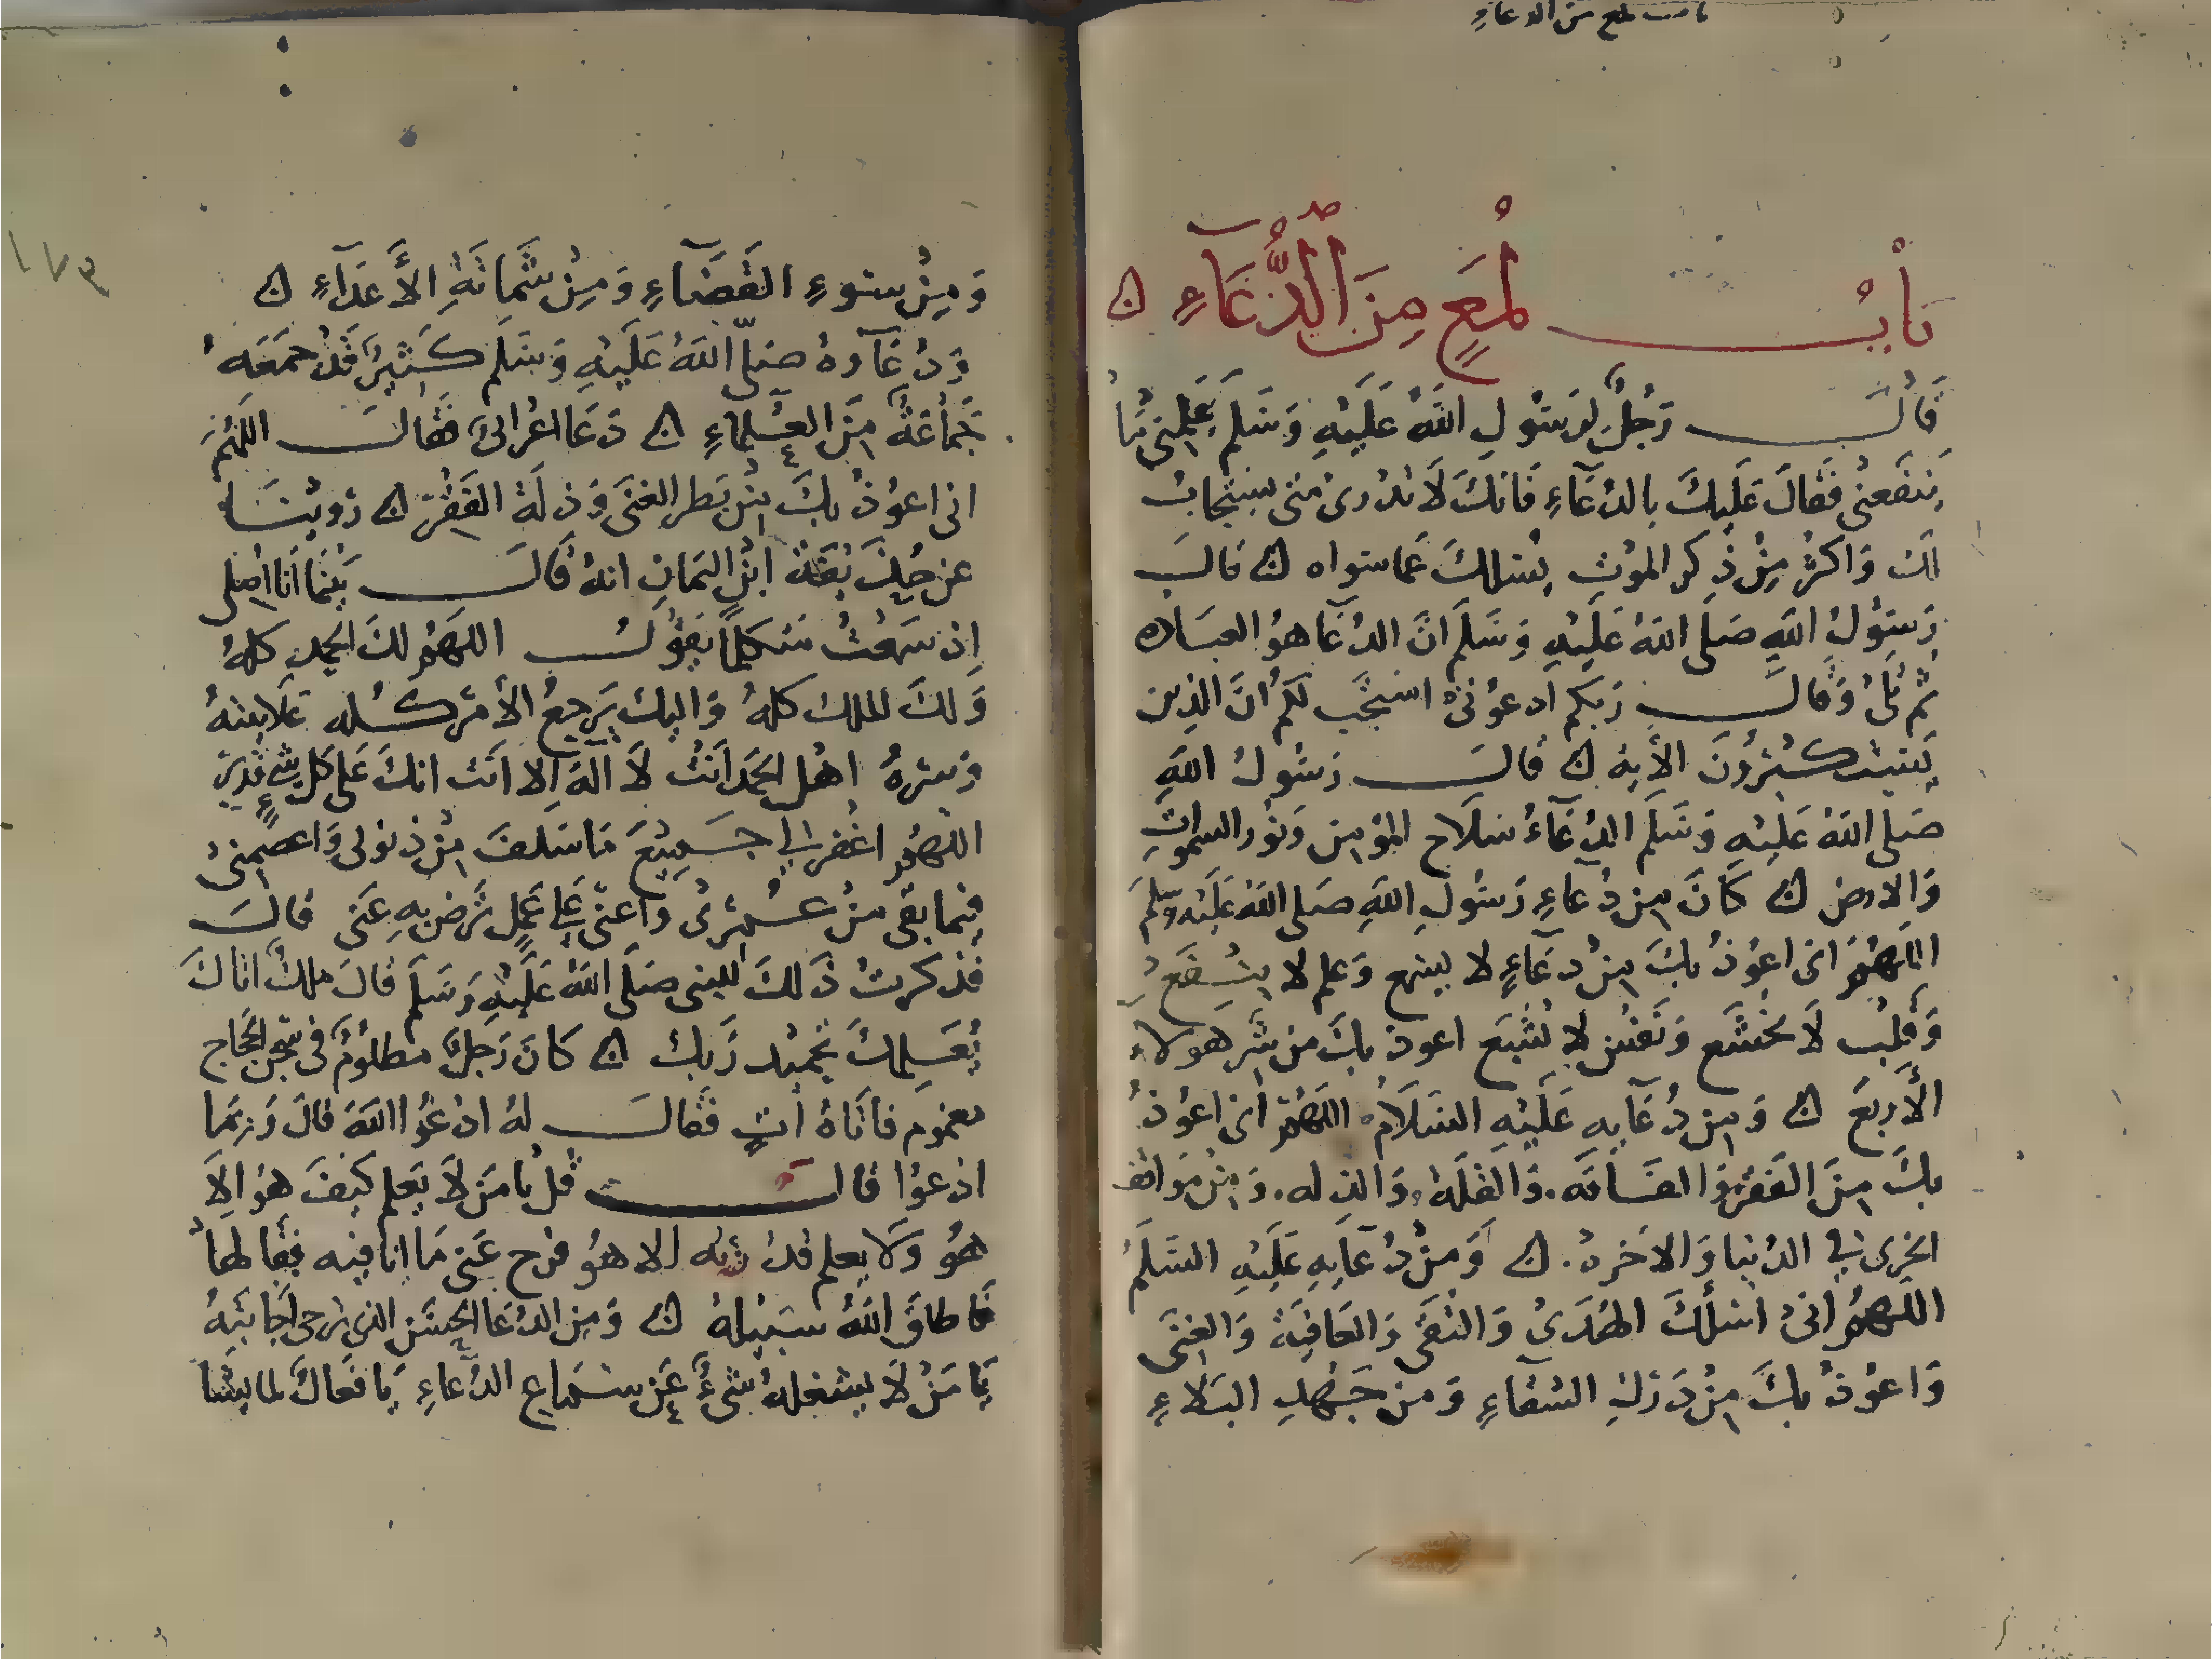 باب لمع من الدعاء
بَابُ لُمَعٍ مِنَ الدُّعَآءِ ن
قَالَ رَجُلٌ لرَسُولِ اللهُ عَلَيْهِ وَسَلم عَلِمْنِى مَا
يَنفَعنِى فَقَالَ عَلَيكَ بالدُعَآءِ فَانكَ لَا تدرى متى يستجابُ
لك وَاكثر مِنْ ذِكر الموْتِ يُسْلكَ عَما سواه ن قالَ
رَسُولُ اللهِ صَلى اللهُ عَلَيْهِ وَسَلَم انَّ الدُعَا هوُ العبادَه
ثم تلىُ وَقَالَ رَبكم ادعوُنى استجَب لكم انَّ الذين
يَستكبرُونَ الأيه ن قالَ رَسُولُ اللهِ
صَلى اللهُ عَلَيْهِ وَسَلَم الدُعَآءُ سلَاح المؤمِن وَنوُر السمواتِ
وَالارض ن كَانَ مِن دُعَاءِ رَسُولِ اللهِ صَلى اللهُ عَلَيْهِ وسلم
اللهُمَ انى اعوُذ بكَ مِنْ دعَآءٍ لا يسمع وَعلم لا ينفع
وَقلبُ لَا يخشَع وَنَفسٍ لا تشبَع اعوذ بكَ من شر هَولاء
الأربَع ن وَمِن دُعَآيهِ عَلَيْهِ السَلَامُ اللهُمَ انى اعوُذُ
بكَ مِنَ الفَقرُ وَالفَاقَه . وَالقلَه . وَالذله . وَمِنْ مَواقف
الخزى فى الدُنيا وَالاخرَه . ن وَمِنْ دُعَآيهِ عَلَيْهِ السَلَمُ
اللهُمَ انى اسْألكَ الهُدَى وَالتقَى وَالعَافيَة وَالغِنَى
وَاعوُذ بكَ مِنْ دَرَكِ الشقَاءِ وَمن جَهْدِ البَلاءِ
١٧٣
وَمِنْ سوءِ القَضَآءِ وَمِنْ شَمَاتَةِ الأَعدَآءِ ن
وَدُعَآوهُ صَلى اللهُ عَلَيْهِ وَسَلَم كَثيرٌ قَدْ جمَعَهُ
جَمَاعَةٌ مِنَ العُلَماءِ ن دَعَا اعرَابىٌ فَقالَ اللهُمَ
انى اعوُذ بكَ مِنْ بَطر الغنَى وَذلَة الفَقْر ن رَوينَا
عن حُذيفَة ابنِ اليَمَانِ انهُ قَالَ بَيْنَمَا انا اُصَلى
اِذ سَمعتُ متكلمًا يَقوُلُ اللهُم لكَ الحمد كلهُ
وَلكَ الملك كلهُ وَاليك يَرجعُ الأمرُ كُله عَلَانيتهُ
وَسرهُ اهْل الحمَد اَنتْ لَا الَهَ اِلا اَنت انكَ عَلى كل شىءٍ قديرٌ
اللهُم اغفر لى جَميعَ مَا سَلفَ مِنْ ذنوبى وَاعصمنى
فِيما بَقى مِنْ عُمرى واَعنّى عَلى عَمَلٍ تَرضى بهِ عَنى قالَ
فذكرتُ ذَلكَ للنبى صَلى اللهُ عَلَيْهِ وَسَلَم قالَ ملكٌ اتاكَ
يُعَلِمكَ تحميد رَبك ن كَانَ رَجلٌ مظلوُمٌ فى سجن الحجاج
مغموم فاتَاهُ اَتٍ فَقَالَ لهُ ادعُ اللهَ قَالَ وَبمَا
ادعوُا قالَ قل يا مَن لَا يَعلم كيفَ هوُ الا
هوُ وَلَا يعلم قدرُته الا هوُ فرج عَنى مَا انا فيه فقالهَا
فاطلقَ اللهُ سبيلهُ ن وَمِن الدُعَا الحسَن الذى ترجى اجَابتَهُ
يَا مَنْ لَا يشغلهُ شىءٌ عَن سَماع الدُعاءِ يَا فعال لما يشا